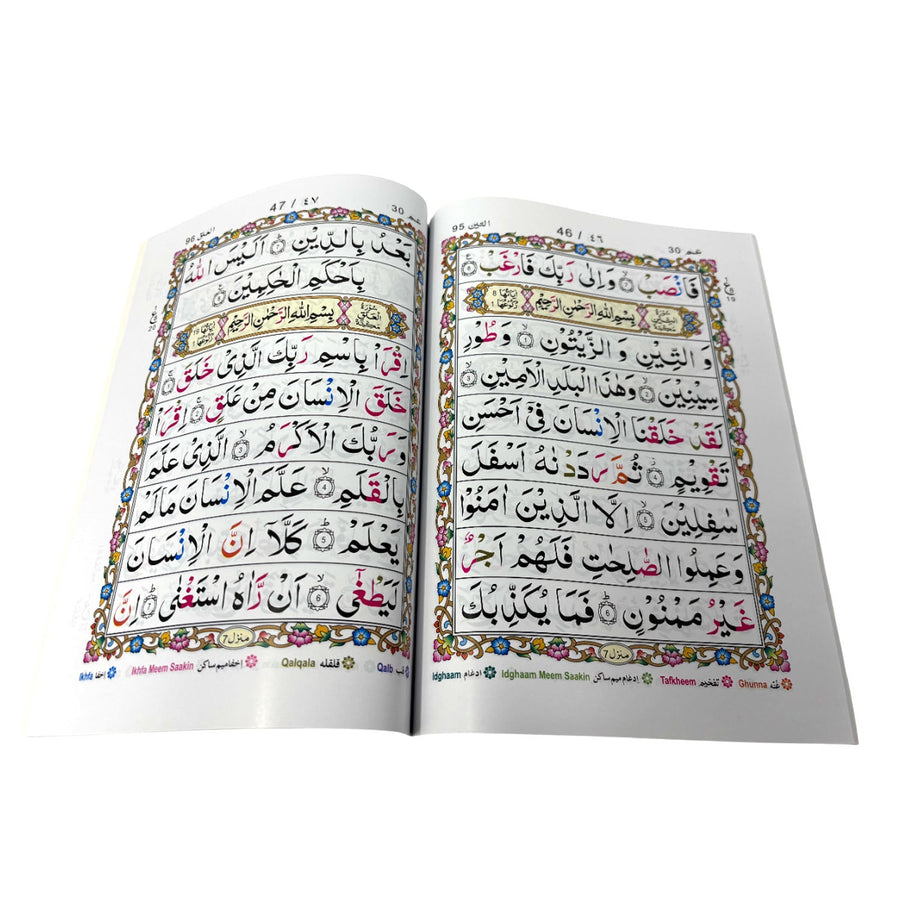 عم 30
46 / ٤٦
التين 95
فَانْصَبْ ۙ۝٧ وَاِلٰى رَبِّكَ فَارْغَبْ ۝٨
بِسْمِ اللّٰهِ الرَّحْمٰنِ الرَّحِيْمِ
وَالتِّيْنِ وَالزَّيْتُوْنِ ۙ۝١ وَطُوْرِ
سِيْنِيْنَ ۙ۝٢ وَهٰذَا الْبَلَدِ الْاَمِيْنِ ۙ۝٣
لَقَدْ خَلَقْنَا الْاِنْسَانَ فِىْۤ اَحْسَنِ
تَقْوِيْمٍ ۝٤ ثُمَّ رَدَدْنٰهُ اَسْفَلَ
سٰفِلِيْنَ ۙ۝٥ اِلَّا الَّذِيْنَ اٰمَنُوْا
وَعَمِلُوا الصّٰلِحٰتِ فَلَهُمْ اَجْرٌ
غَيْرُ مَمْنُوْنٍ ؕ۝٦ فَمَا يُكَذِّبُكَ
منزل 7
Ghunna غنه
Tafkheem تفخيم
Idgham Meem Saakin ادغام ميم ساكن
Idghaam ادغام
عم 30
47 / ٤٧
العلق 96
بَعْدُ بِالدِّيْنِ ؕ۝٧ اَلَيْسَ اللّٰهُ
بِاَحْكَمِ الْحٰكِمِيْنَ ۝٨
بِسْمِ اللّٰهِ الرَّحْمٰنِ الرَّحِيْمِ
اِقْرَاْ بِاسْمِ رَبِّكَ الَّذِىْ خَلَقَ ۚ۝١
خَلَقَ الْاِنْسَانَ مِنْ عَلَقٍ ۚ۝٢ اِقْرَاْ
وَرَبُّكَ الْاَكْرَمُ ۙ۝٣ الَّذِىْ عَلَّمَ
بِالْقَلَمِ ۙ۝٤ عَلَّمَ الْاِنْسَانَ مَا لَمْ
يَعْلَمْ ؕ۝٥ كَلَّاۤ اِنَّ الْاِنْسَانَ
لَيَطْغٰٓى ۙ۝٦ اَنْ رَّاٰهُ اسْتَغْنٰى ؕ۝٧ اِنَّ
منزل 7
Qalb قلب
Qalqala قلقله
Ikhfa Meem Saakin اخفا ميم ساكن
Ikhfa اخفا